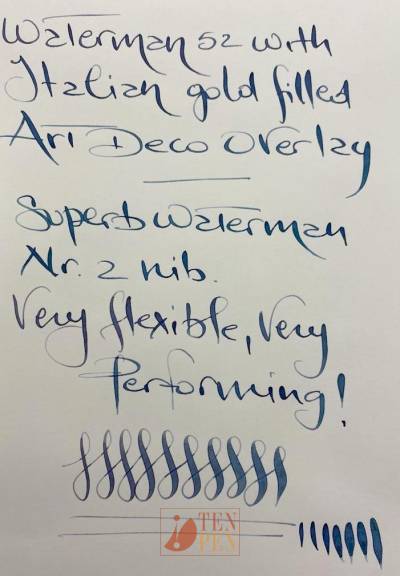 Waterman 52 with
Italian gold filled
Art Deco Overlay
Superb Waterman
Nr. 2 nib.
Very flexible, Very
Performing!
TEN
PEN